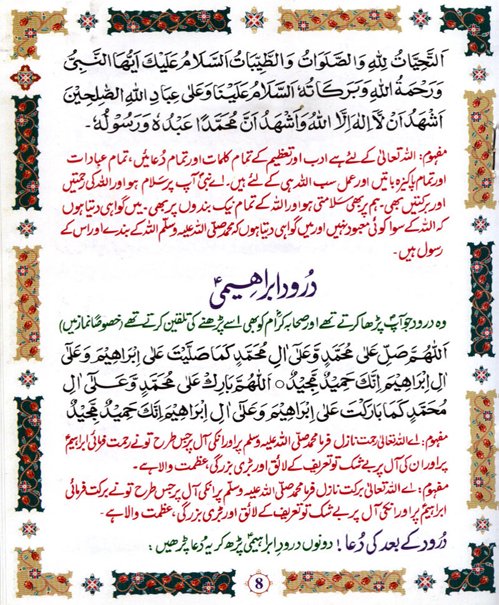 اَلتَّحِيَّاتُ لِلّٰهِ وَالصَّلَوَاتُ وَالطَّيِّبَاتُ اَلسَّلَامُ عَلَيْكَ اَيُّهَا النَّبِيُّ
وَرَحْمَةُ اللّٰهِ وَبَرَكَاتُهٗ اَلسَّلَامُ عَلَيْنَا وَعَلٰى عِبَادِ اللّٰهِ الصّٰلِحِيْنَ
اَشْهَدُ اَنْ لَّا اِلٰهَ اِلَّا اللّٰهُ وَاَشْهَدُ اَنَّ مُحَمَّدًا عَبْدُهٗ وَرَسُوْلُهٗ۔
مفہوم: اللہ تعالیٰ کے لئے ہے ادب اور تعظیم کے تمام کلمات اور تمام دُعائیں، تمام عبادات
اور تمام پاکیزہ باتیں اور عمل سب اللہ ہی کے لئے ہیں۔ اے نبیؐ آپ پر سَلام ہو اور اللہ کی رحمتیں
اور برکتیں بھی۔ ہم پر بھی سلامتی ہو اور اللہ کے تمام نیک بندوں پر بھی۔ میں گواہی دیتا ہوں
کہ اللہ کے سوا کوئی معبود نہیں اور میں گواہی دیتا ہوں کہ محمد صلی اللہ علیہ وسلم اللہ کے بندے اور اس کے
رسول ہیں۔
دُرودِ ابراھیمیؑ
وہ درود جو آپؐ پڑھا کرتے تھے اور صحابہ کرامؓ کو بھی اسے پڑھنے کی تلقین کرتے تھے (خصوصًا نماز میں)
اَللّٰهُمَّ صَلِّ عَلٰى مُحَمَّدٍ وَّعَلٰى اٰلِ مُحَمَّدٍ كَمَا صَلَّيْتَ عَلٰى اِبْرَاهِيْمَ وَعَلٰى
اٰلِ اِبْرَاهِيْمَ اِنَّكَ حَمِيْدٌ مَّجِيْدٌ ○ اَللّٰهُمَّ بَارِكْ عَلٰى مُحَمَّدٍ وَّعَلٰى اٰلِ
مُحَمَّدٍ كَمَا بَارَكْتَ عَلٰى اِبْرَاهِيْمَ وَعَلٰى اٰلِ اِبْرَاهِيْمَ اِنَّكَ حَمِيْدٌ مَّجِيْدٌ
مفہوم: اے اللہ تعالیٰ رحمت نازل فرما محمد صلی اللہ علیہ وسلم پر اور انکی آل پر جس طرح تو نے رحمت فرمائی ابراہیمؑ
پر اور ان کی آل پر بے شک تو تعریف کے لائق اور بڑی بزرگی عظمت والا ہے۔
مفہوم: اے اللہ تعالیٰ برکت نازل فرما محمد صلی اللہ علیہ وسلم پر اور انکی آل پر جس طرح تو نے برکت فرمائی
ابراہیمؑ پر اور انکی آل پر بے شک تو تعریف کے لائق اور بڑی بزرگی، عظمت والا ہے۔
دُرود کے بعد کی دُعا! دونوں درودِ ابراہیمیؑ پڑھ کر یہ دُعا پڑھیں:
8